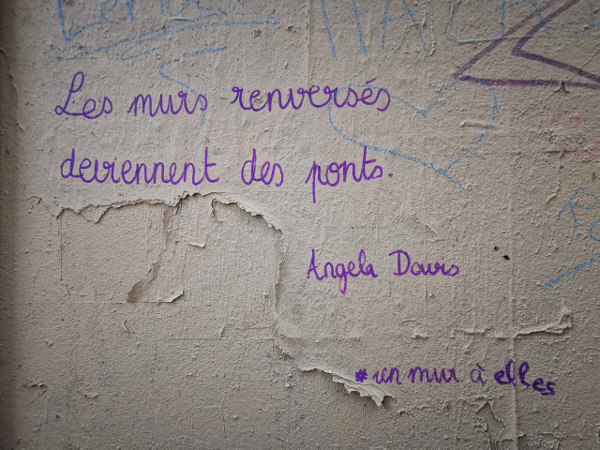 Les murs renversés
deviennent des ponts.
Angela Davis
#un mur à elles